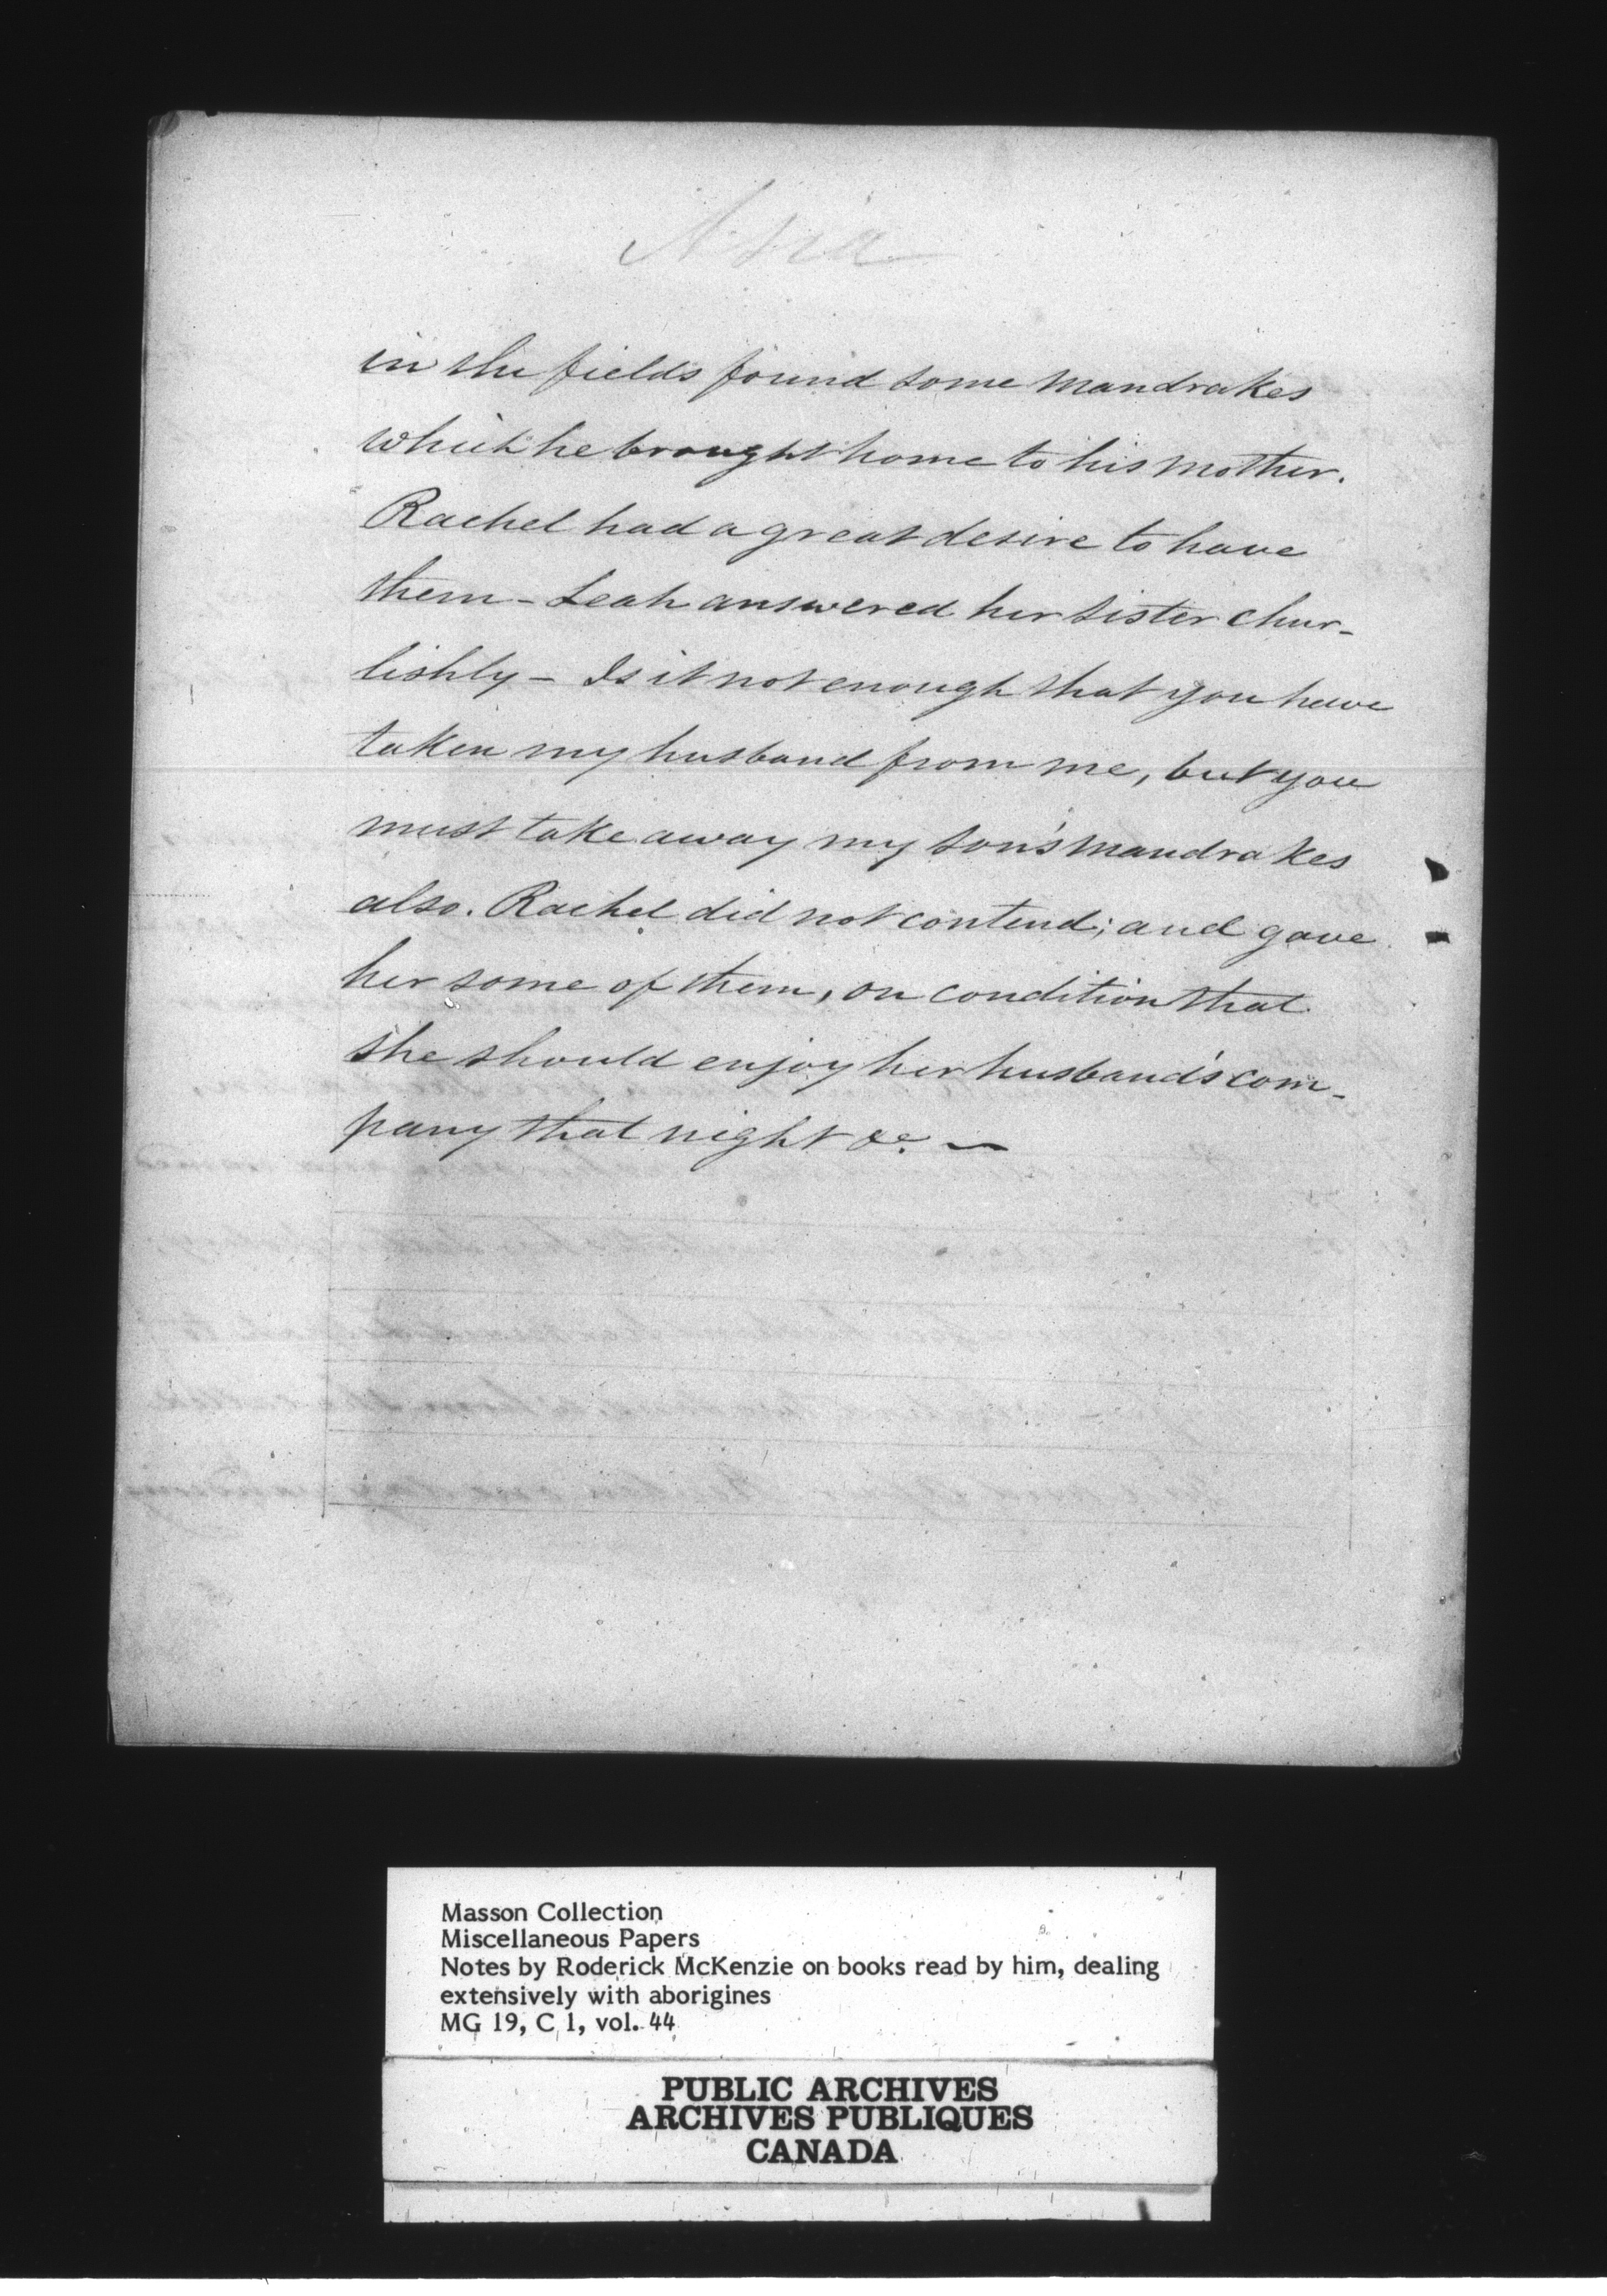 Asia
in the fields found some mandrakes
which he brought home to his mother.
Rachel had a great desire to have
them - Leah answered her sister chur-
lishly - Is it not enough that you have
taken my husband from me, but you
must take away my son's mandrakes
also. Rachel did not contend; and gave
her some of them, on condition that
she should enjoy her husband's com-
pany that night &c. —
Masson Collection
Miscellaneous Papers
Notes by Roderick McKenzie on books read by him, dealing
extensively with aborigines
MG 19, C 1, vol. 44
PUBLIC ARCHIVES
ARCHIVES PUBLIQUES
CANADA